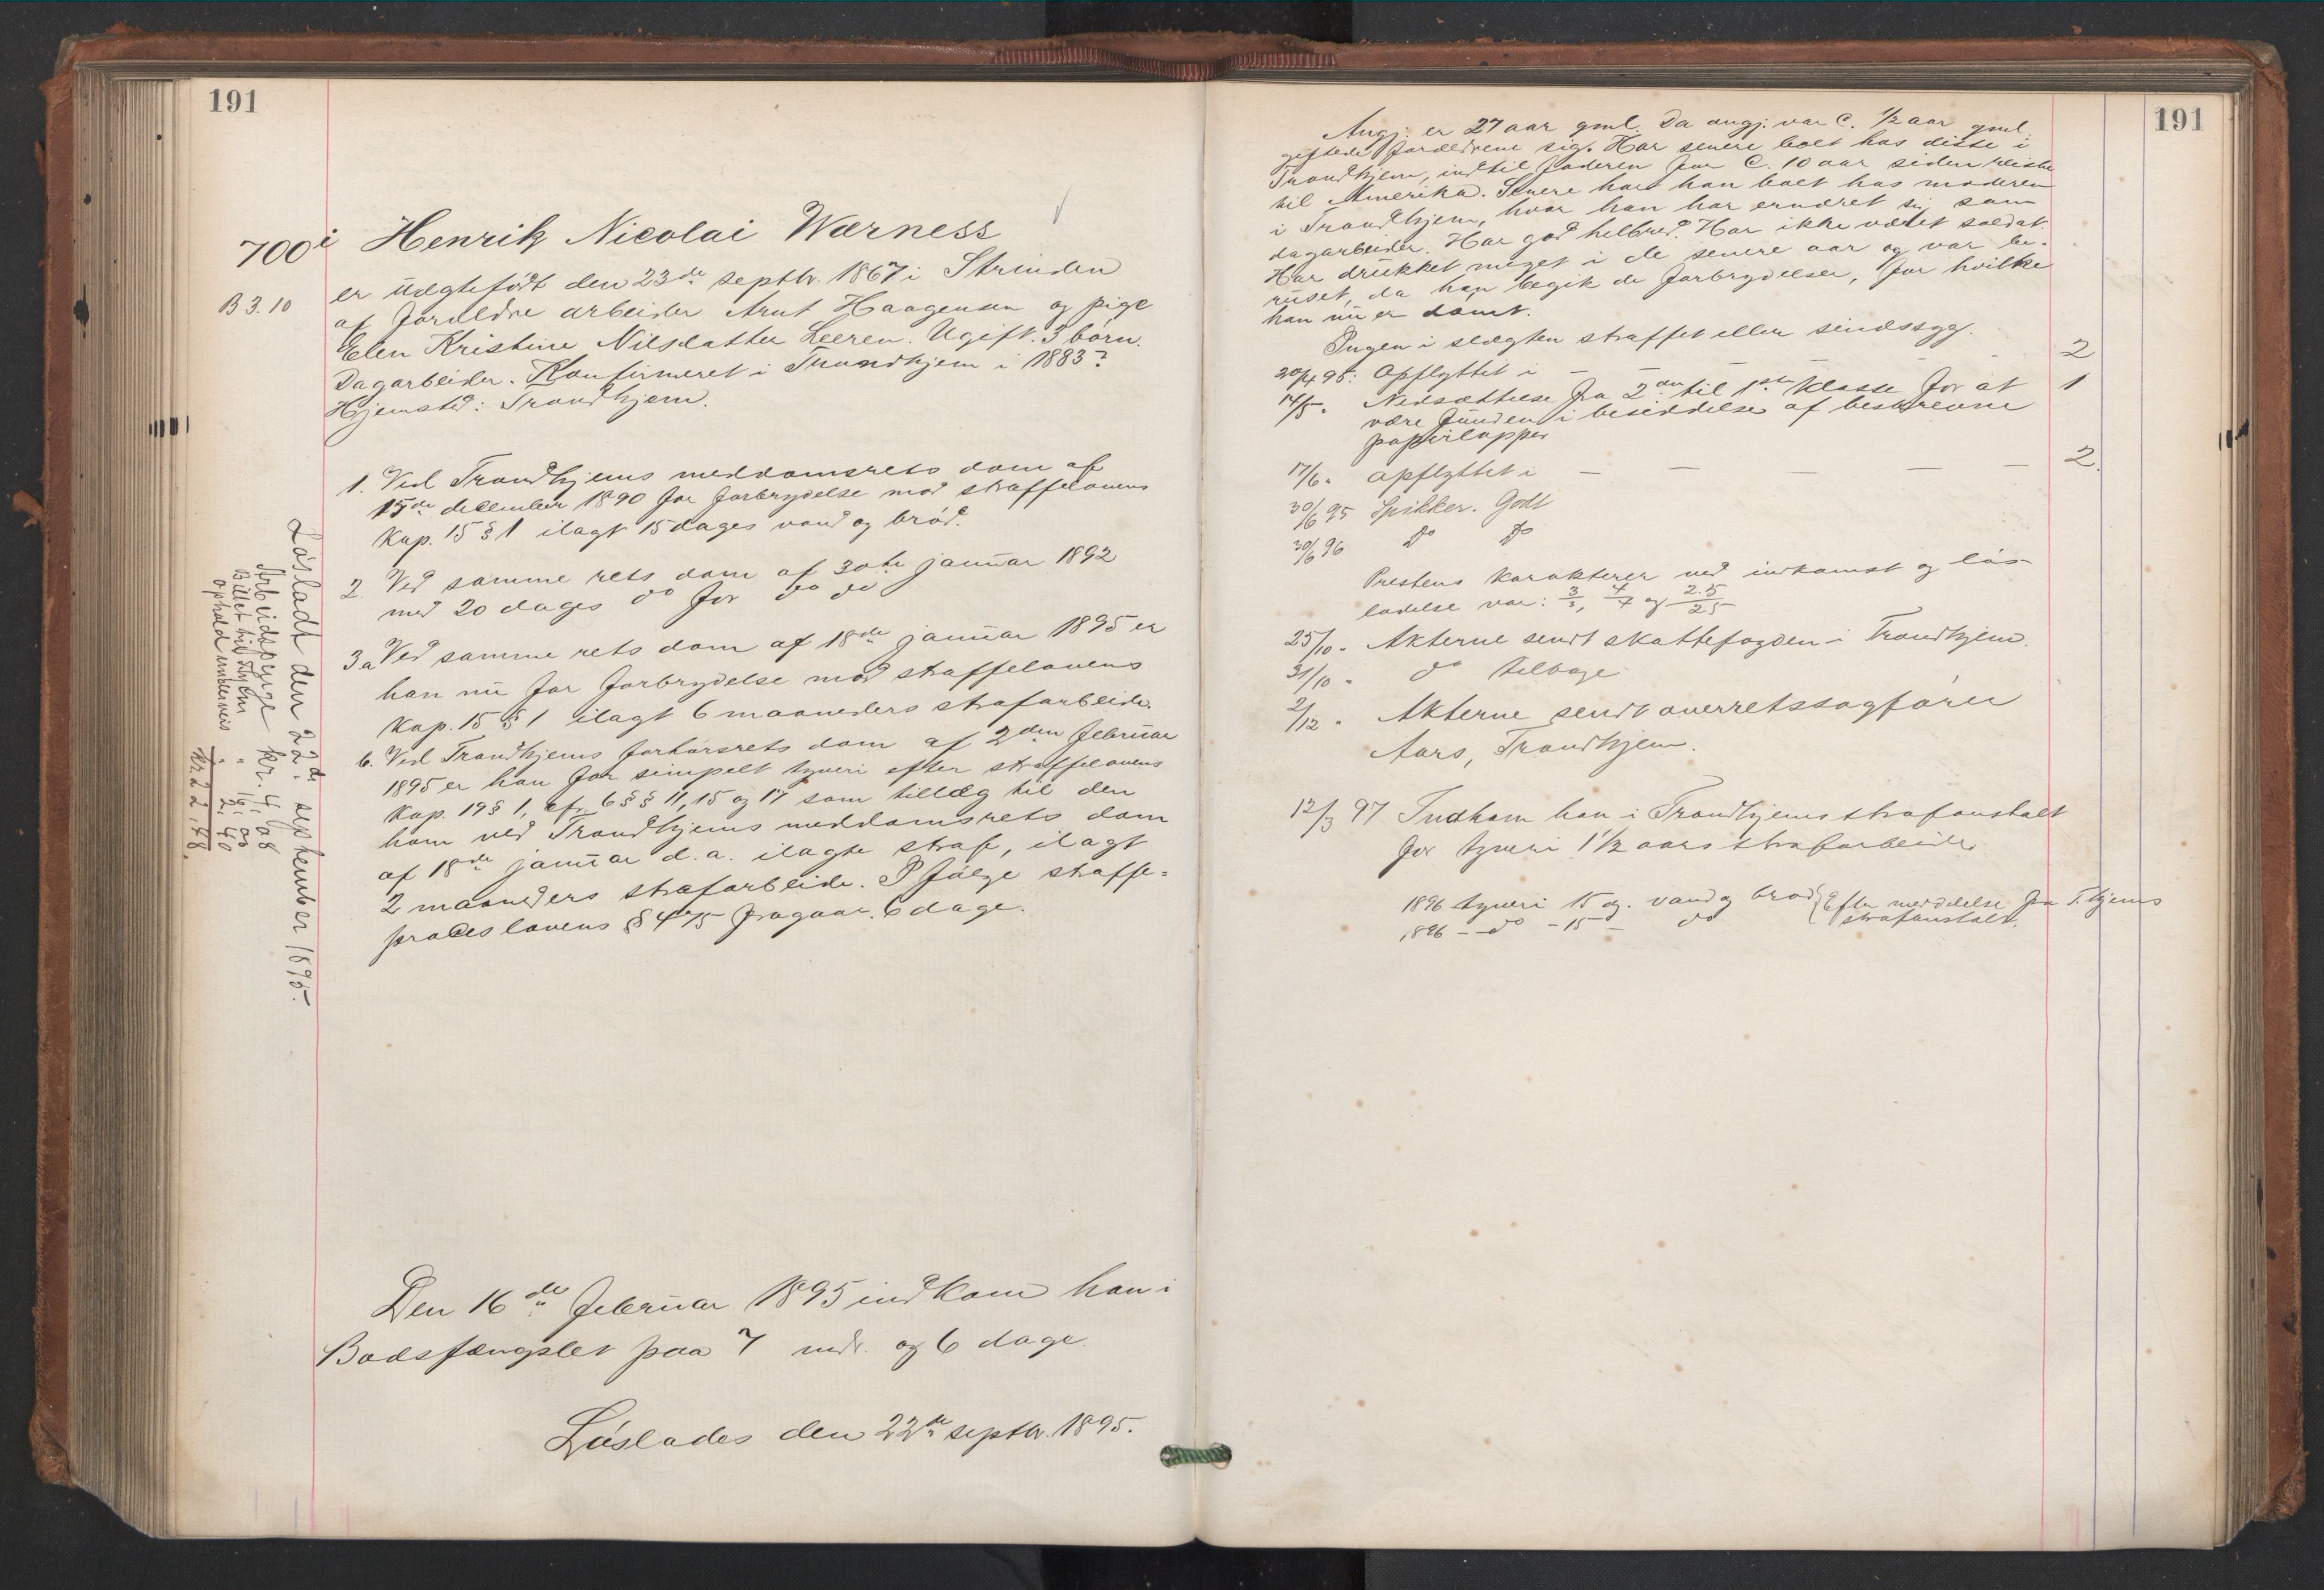 191
700 i Henrik Nicolai Wærness
B 3. 10
er uægtefødt den 23de septbr. 1867 i Strinden
af forældre arbeider Arnt Haagensen og pige
Elen Kristine Nilsdatter Leeren. Ugift. 3 børn.
Dagarbeider. Konfirmeret i Trondhjem i 1883?
Hjemsted: Trondhjem.
1. Ved Trondhjems meddomsrets dom af
15de december 1890 for forbrydelse mod straffelovens
Kap. 15 § 1 ilagt 15 dages vand og brød.
2. Ved samme rets dom af 30te januar 1892
med 20 dages do for do do
3a Ved samme rets dom af 18de januar 1895 er
han nu for forbrydelse mod straffelovens
Kap. 15 § 1 ilagt 6 maaneders strafarbeide.
b. Ved Trondhjems forhørsrets dom af 2den februar
1895 er han for simpelt tyveri efter straffelovens
Kap. 19 § 1, cfr. 6 §§ 11, 15 og 17 som tillæg til den
ham ved Trondhjems meddomsrets dom
af 18de januar d. a. ilagte straf, ilagt
2 maaneders strafarbeide. I følge straffe-
proceslovens § 475 fragaar 6 dage.
Løsladt den 22de september 1895.
Arbeidspenge kr. 4,08
Billet til Thjem " 16,00
Ophold underveis " 2,40
kr. 22,48.
Den 16de februar 1895 indkom han i
Bodsfængslet paa 7 mdr. og 6 dage.
Løslades den 22de septbr. 1895.
191
Angj. er 27 aar gml. Da angj. var c. 1/2 aar gml.
giftede forældrene sig. Har senere boet hos disse i
Trondhjem, indtil faderen for c. 10 aar siden reiste
til Amerika. Senere har han boet hos moderen
i Trondhjem, hvor han har ernæret sig som
dagarbeider. Har god helbred. Har ikke været soldat.
Har drukket meget i de senere aar og var be-
ruset, da han begik de forbrydelser, for hvilke
han nu er dømt.
Ingen i slægten straffet eller sindssyg.
20/4 95: Opflyttet i — — — — 2
14/5 " Nedsættelse fra 2den til 1ste klasse for at 1
være funden i besiddelse af beskrevne
papirlapper
17/6 " opflyttet i — — — — — 2.
30/6 95 Spikker. Godt
30/6 96 do do
Prestens karakterer ved indkomst og løs-
ladelse var: 3/3, 4/4 og 2.5/2.5
25/10 " Akterne sendt skattefogden i Trondhjem.
31/10 " do tilbage
2/12 " Akterne sendt overretssagfører
Aars, Trondhjem.
12/3 97 Indkom han i Trondhjems strafanstalt
for tyveri 1 1/2 aars strafarbeide.
1896 tyveri 15 dg. vand og brød } Efter meddelelse fra T.hjems
1896 — do — 15 — do } strafanstalt.